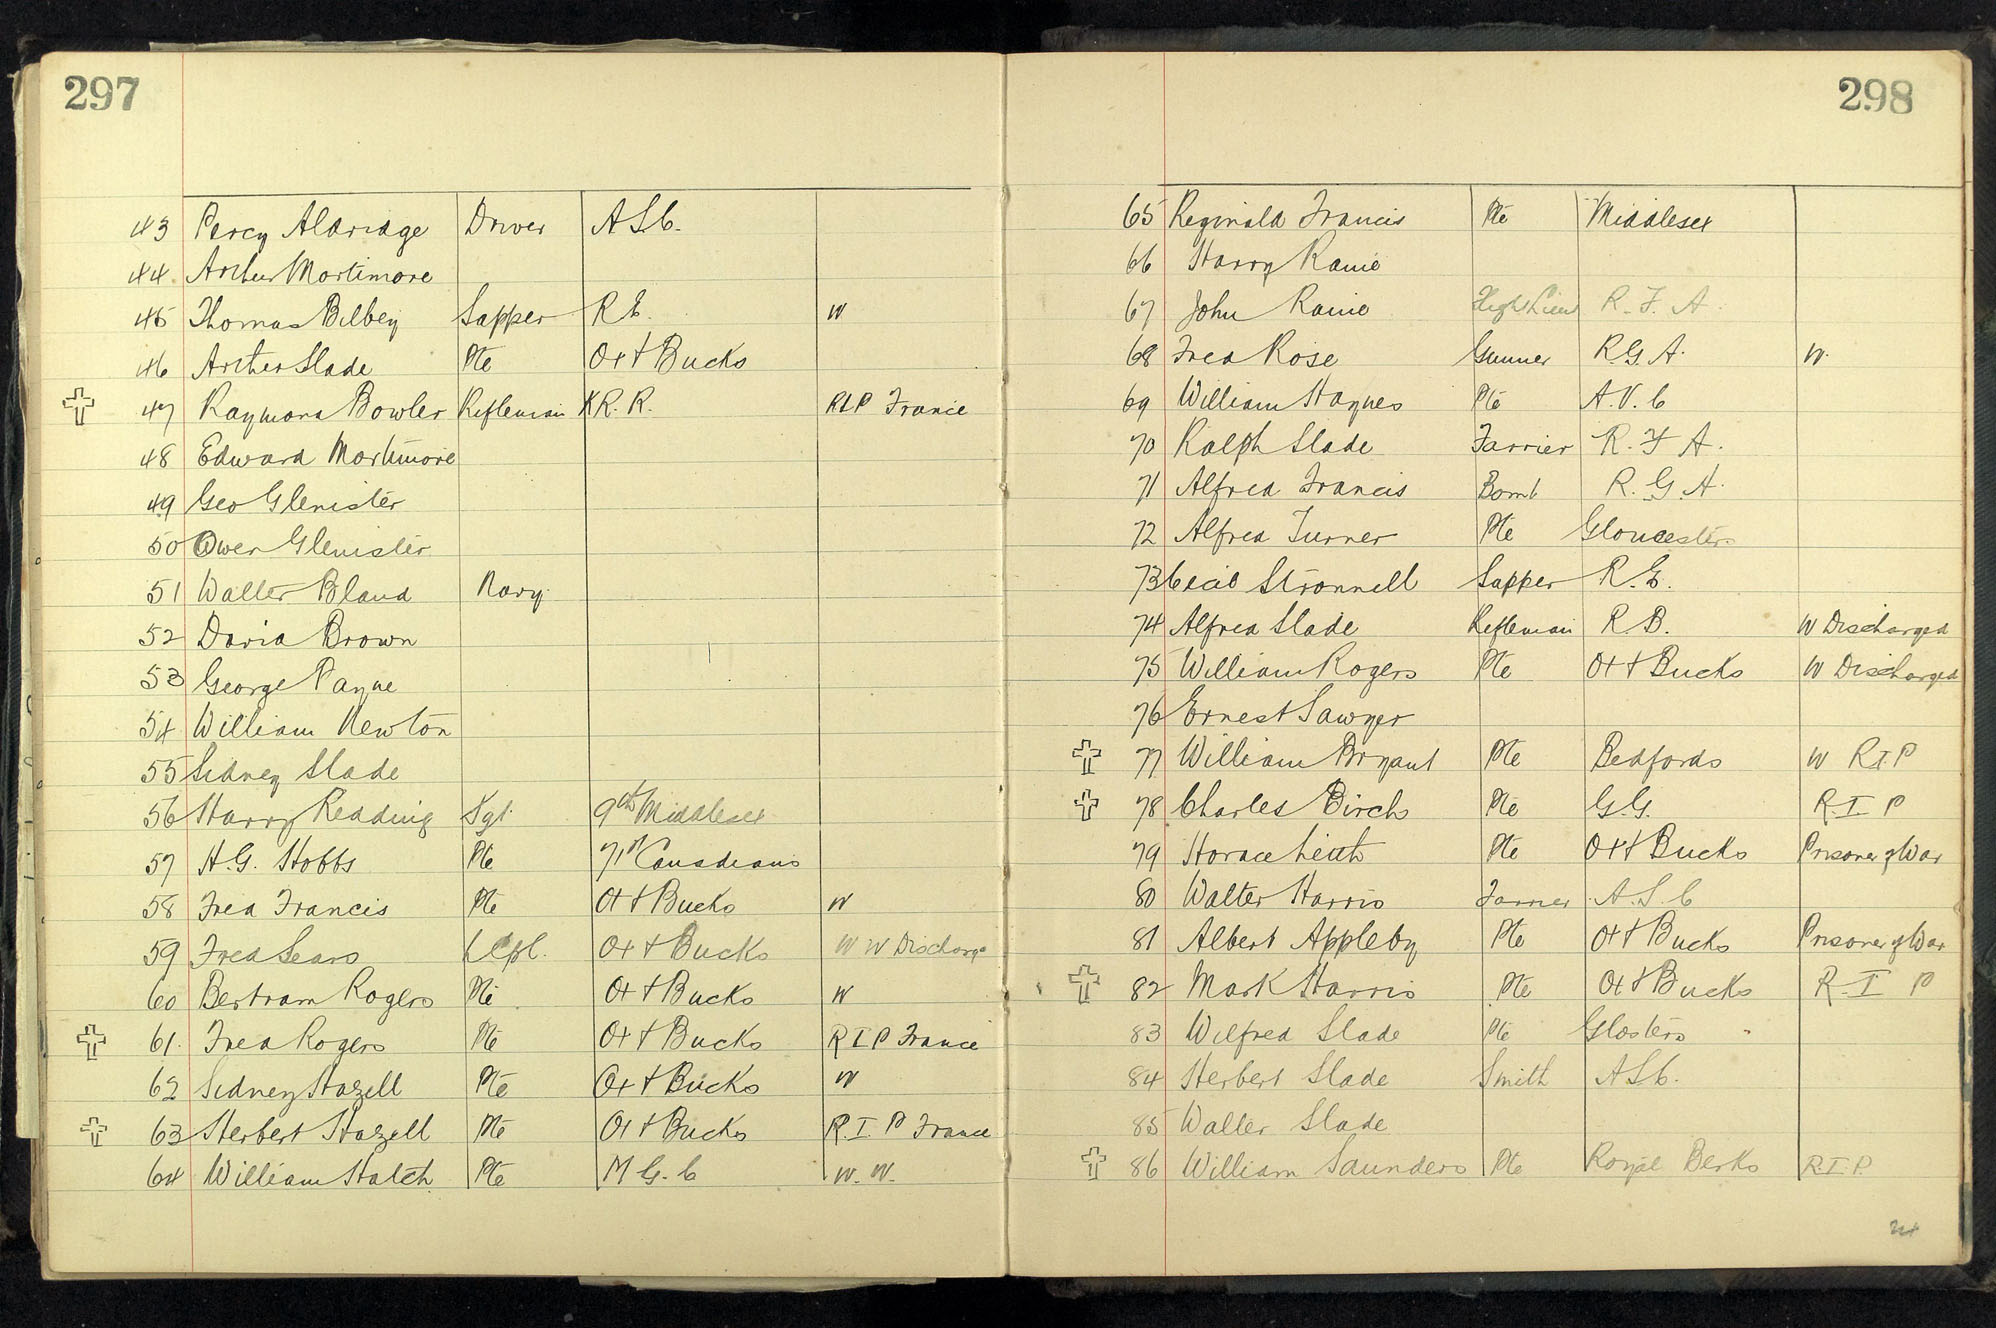 297
43 Percy Aldridge Driver A.S.C.
44 Arthur Mortimore
45 Thomas Bilbey Sapper R.E. W
46 Arthur Slade Pte Ox + Bucks
47 Raymond Bowler Rifleman K R. R. RIP France
48 Edward Mortimore
49 Geo Glenister
50 Owen Glenister
51 Walter Bland Navy
52 David Brown
53 George Payne
54 William Newton
55 Sidney Slade
56 Harry Redding Sgt 9th Middlesex
57 H.G. Hobbs Pte 71st Canadians
58 Fred Francis Pte Ox + Bucks W
59 Fred Sears Ox + Bucks W W Discharge
60 Bertram Rogers Pte Ox + Bucks W
61. Fred Rogers Pte Ox + Bucks R I P France
62 Sidney Hazell Pte Ox + Bucks W
63 Herbert Hazell Pte Ox + Bucks R. I. P France
64 William Hatch Pte M G. C W. W.
298
65 Reginald Francis Pte Middlesex
66 Harry Rame
67 John Rame R. F. A.
68 Fred Rose Gunner R.G.A. W.
69 William Haynes Pte A.V.C
70 Ralph Slade Farrier R. F A.
71 Alfred Francis Bomb R. G. A.
72 Alfred Turner Pte Gloucesters
73 Cecil Stronnell Sapper R.E.
74 Alfred Slade Rifleman R. B. W Discharged
75 William Rogers Pte Ox + Bucks W Discharged
76 Ernest Sawyer
77 William Bryant Pte Bedfords W R I P
78 Charles Birch Pte G.G. R. I P
79 Horace Leith Pte Ox + Bucks Prisoner of War
80 Walter Harris Farrier A. S. C
81 Albert Appleby Pte Ox + Bucks Prisoner of War
82 Mark Harris Pte Ox + Bucks R. I P
83 Wilfred Slade Pte Glosters
84 Herbert Slade Smith A S C.
85 Walter Slade
86 William Saunders Pte Royal Berks R.I.P.